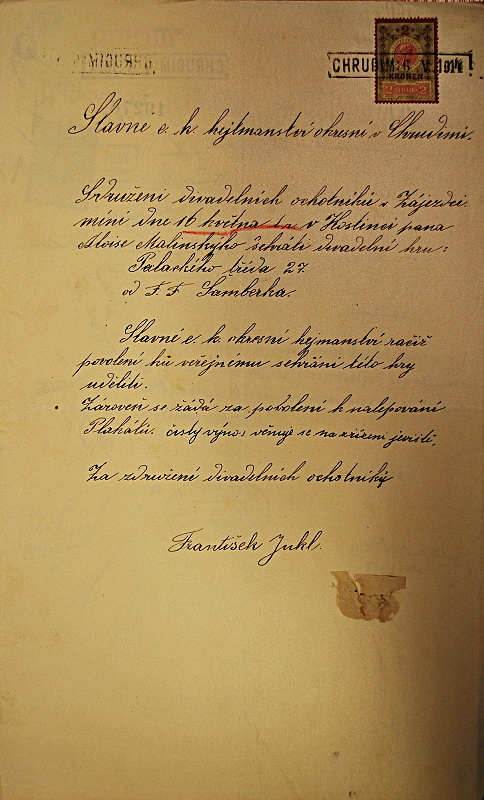 CHRUDIM 6 V. 1914
2
KRONEN
2 1910 2
Slavné c. k. hejtmanství okresní v Chrudimi.
Sdružení divadelních ochotníků v Zájezdci
míní dne 16 května t.r. v Hostinci pana
Aloise Malinskýho sehráti divadelní hru:
Palackého třída 27.
od F. F. Šamberka.
Slavné c. k. okresní hejmanství račiž
povolení ků veřejnému sehrání této hry
uděliti.
Zároveň se žádá za povolení k nalepování
Plakátů. čistý výnos věnuje se na zřízení jeviště.
Za združení divadelních ochotníky
František Jukl.